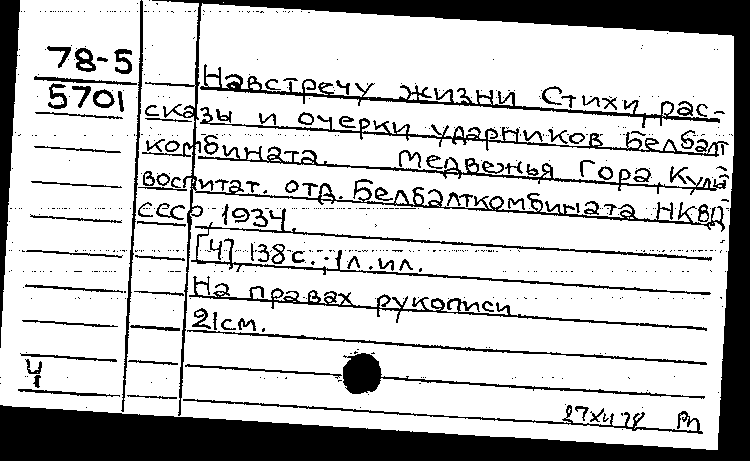 78-5
5701
Навстречу жизни Стихи, рас-
сказы и очерки ударников Белбалт
комбината. Медвежья Гора, Культ
воспитат. отд. Белбалткомбината НКВД
СССР, 1934.
[4], 138 с.; 1 л. ил.
На правах рукописи.
21 см.
Ч